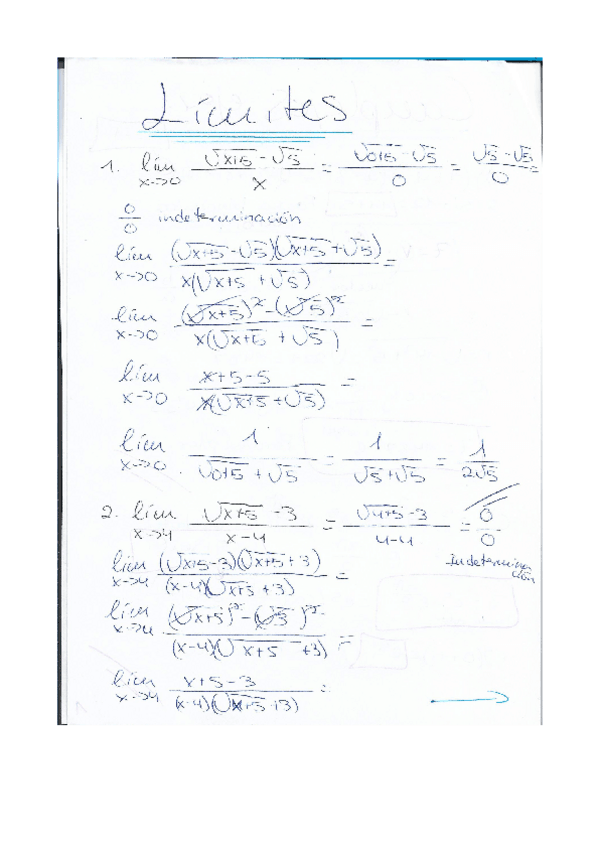 Límites
1. lím x→0 (√x+5 - √5)/x = (√0+5 - √5)/0 = (√5 - √5)/0 =
0/0 indeterminación
lím x→0 (√x+5 - √5)(√x+5 + √5)/x(√x+5 + √5) =
lím x→0 (√x+5)² - (√5)²/x(√x+5 + √5) =
lím x→0 x+5-5/x(√x+5 + √5) =
lím x→0 1/√0+5 + √5 = 1/√5 + √5 = 1/2√5
2. lím x→4 √x+5 - 3/x-4 = √4+5 - 3/4-4 = 0/0
Indeterminación
lím x→4 (√x+5 - 3)(√x+5 + 3)/(x-4)(√x+5 + 3) =
lím x→4 (√x+5)² - (√3)²/(x-4)(√x+5 + 3) =
lím x→4 x+5-3/(x-4)(√x+5 + 3) =